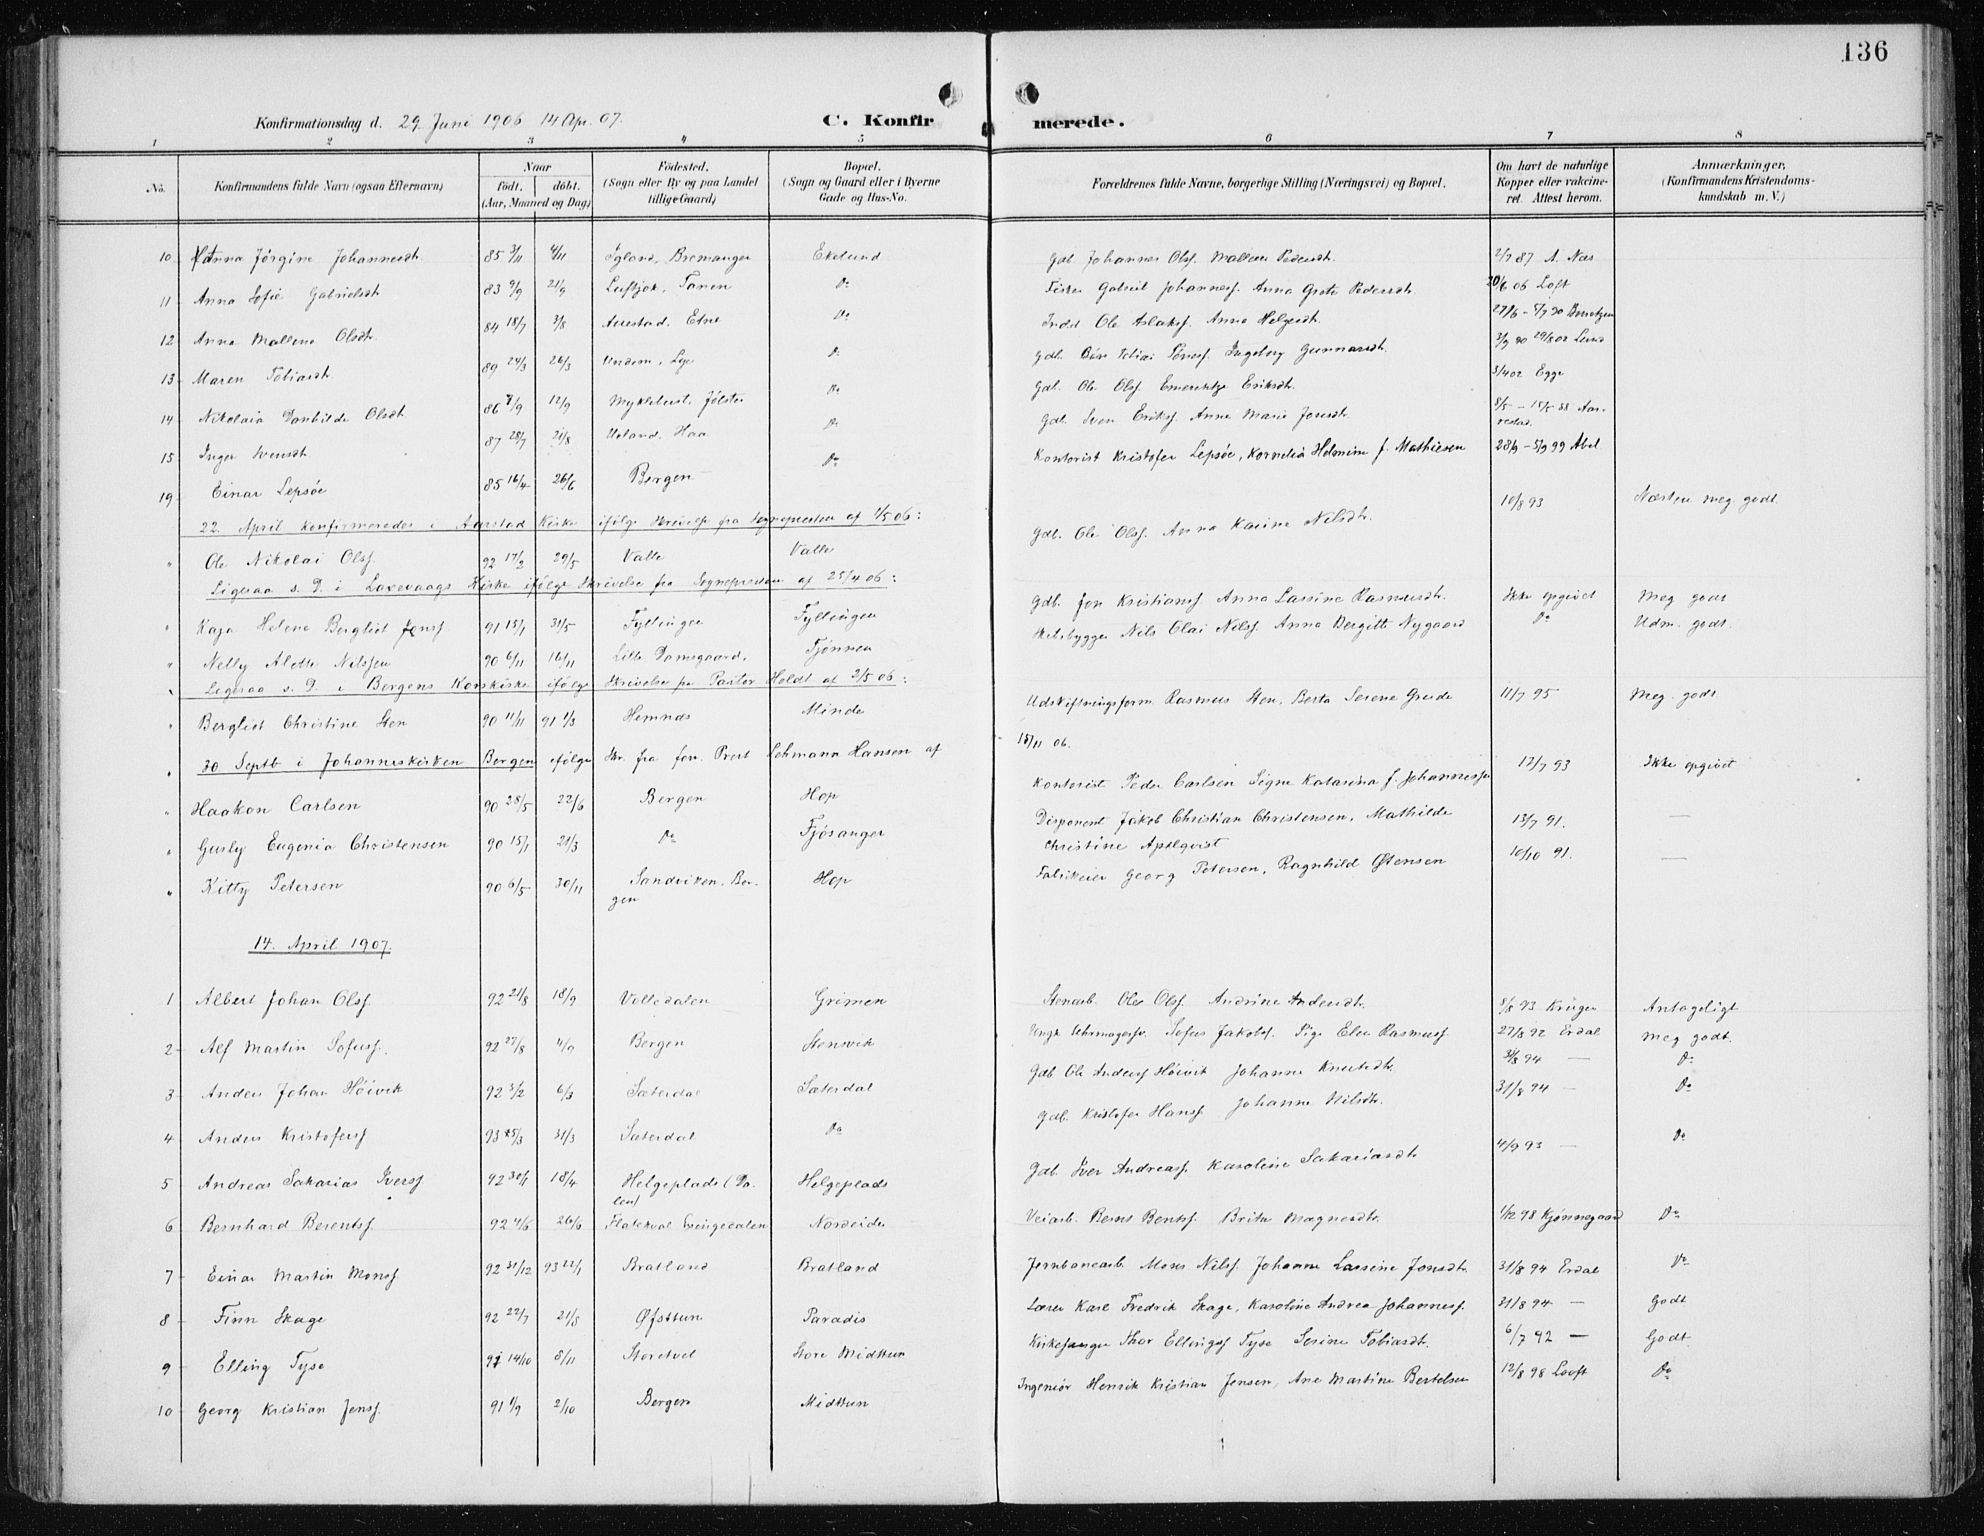 136
Konfirmationsdag d. 29 Juni 1906 14 Apr. 07. C. Konfirmerede.
1 2 3 4 5 6 7 8
No. Konfirmandens fulde Navn (ogsaa Efternavn) Naar födt. döbt. (Aar, Maaned og Dag) Födested. (Sogn eller By og paa Landet tillige Gaard) Bopæl. (Sogn og Gaard eller i Byerne Gade og Hus-No. Forældrenes fulde Navne, borgerlige Stilling (Næringsvei) og Bopæl. Om havt de naturlige Kopper eller vakcineret. Attest herom. Anmærkninger, (Konfirmandens Kristendomskundskab m. V.)
10 Anna Jörgine Johannesdt. 85 3/11 4/11 Igland, Bremanger Ekelund Gdb. Johannes Olsf. Mallene Pedersdt. 2/7 87 A. Næs
11 Anna Sofie Gabrielsdt 83 9/9 21/9 Leiftjok, Tanen Do Fisker Gabriel Johannesf. Anna Grete Pedersdt. 20/6 06 Loft
12 Anna Mallena Olsdt. 84 18/7 3/8 Aurestad, Etne Do Inds. Ole Aslaksf. Anna Helgesdt. 27/6 - 5/7 90
13 Maren Tobiasdt. 89 24/3 26/3 Undem, Lye Do Gdb. Tobias Tönnesf. Ingeborg Gunnarsdt. 3/9 90 29/8 02 Lund
14 Nikolaia Danhilde Olsdt 86 7/9 12/9 Myklebust, Jölster Do Gdb. Ole Olsf. Emerentze Eriksdt. 3/4 02 Egge
15 Inger Svensdt. 87 28/7 21/8 Ueland, Haa Do Gdb. Sven Eriksf. Anne Marie Jonsdt. 8/5 - 15/5 88 Aarrestad.
19 Einar Lepsöe 85 16/4 26/6 Bergen Do Kontorist Kristofer Lepsöe, Kornelia Helmine f. Mathiesen 28/9 - 5/9 99 Abel
22. April konfirmeredes i Aarstad Kirke ifölge Skrivelse fra Sognepresten af 1/5 06:
" Ole Nikolai Olsf. 92 17/2 29/5 Valle Valle Gdb. Ole Olsf. Anna Karine Nilsdt. 10/8 93 Næsten meg. godt
Ligesaa s. D. i Laxevaags Kirke ifölge Skrivelse fra Sognepresten af 25/4 06:
" Kaja Helene Bergliot Jensf. 91 15/1 31/5 Fyllingen Fyllingen Gdb. Jon Kristiansf. Anna Lassine Rasmusdt. Ikke opgivet Meg godt
" Nelly Alette Nilssen 90 6/11 16/11 Lille Damsgaard. Fjönnen Skibsbygger Nils Olai Nilsf. Anna Bergitte Nygaard Do Udm. godt.
Ligesaa s. D. i Bergens Korskirke ifölge Skrivelse fra Pastor Holdt af 2/5 06:
" Bergliot Christine Sten 90 11/11 91 1/3 Hemnæs Minde Udskiftningsform. Rasmus Sten. Berta Serene Grude 11/7 95 Meg. godt
" 30. Septb i Johanneskirken Bergen ifölge Skr. fra fun. Prest Lehmann Hansen af 15/11 06.
" Haakon Carlsen 90 28/5 22/6 Bergen Hop Kontorist Peder Carlsen Signe Katarina f. Johannessen 12/7 93 Ikke opgivet
" Gusly Eugenia Christensen 90 15/1 21/3 Do Fjösanger Disponent Jakob Christian Christensen, Mathilde Christine Apelqvist 13/7 91. —
" Kitty Petersen 90 6/5 30/11 Sandviken, Bergen Hop Fabrikeier Georg Petersen, Ragnhild Østensen 10/10 91. —
14. April 1907.
1 Albert Johan Olsf. 92 21/8 18/9 Volledalen Grimen Stenarb. Ole Olsf. Andrine Andersdt. 8/8 93 Krüger Antageligt
2 Alf Martin Sofusf. 92 27/8 4/9 Bergen Stensvik Ungk. Uhrmagersv. Sofus Jakobsf. Pige Elen Rasmusf. 27/8 92 Erdal Meg godt.
3 Anders Johan Höivik 92 3/2 6/3 Sæterdal Sæterdal Gdb Ole Andersf Höivik Johanne Knutsdt. 31/8 94 — Do
4 Anders Kristofersf 93 25/3 31/3 Sæterdal Do Gdb. Kristofer Hansf. Johanne Nilsdt. 31/8 94 — Do
5 Andreas Sakarias Iversf 92 30/1 18/4 Helgeplads (Dalen) Helgeplads Gdb. Iver Andreasf. Karoline Sakariasdt. 4/9 93 — Do
6 Bernhard Berentsf. 92 4/6 26/6 Flatekval Exingedalen Nordeide Veiarb. Bernt Bentsf. Brita Magnesdt. 1/12 98 Kjönnegaard Do
7 Einar Martin Monsf. 92 31/12 93 22/1 Bratland Bratland Jernbanearb. Mons Nilsf. Johanne Lassine Jonsdt. 31/8 94 Erdal Do
8 Finn Skage 92 22/7 21/8 Øfsttun Paradis Lærer Karl Fredrik Skage, Karoline Andrea Johannesf. 31/8 94 — Godt
9 Elling Tyse 91 14/10 8/11 Storetvet Store Midttun Kirkesanger Thor Ellingsf Tyse Serine Tobiasdt. 6/7 92 — Godt
10 Georg Kristian Jensf. 91 1/9 2/10 Bergen Midttun Ingeniör Henrik Kristian Jensen, Ane Martine Bertelsen 12/8 98 Looft Do